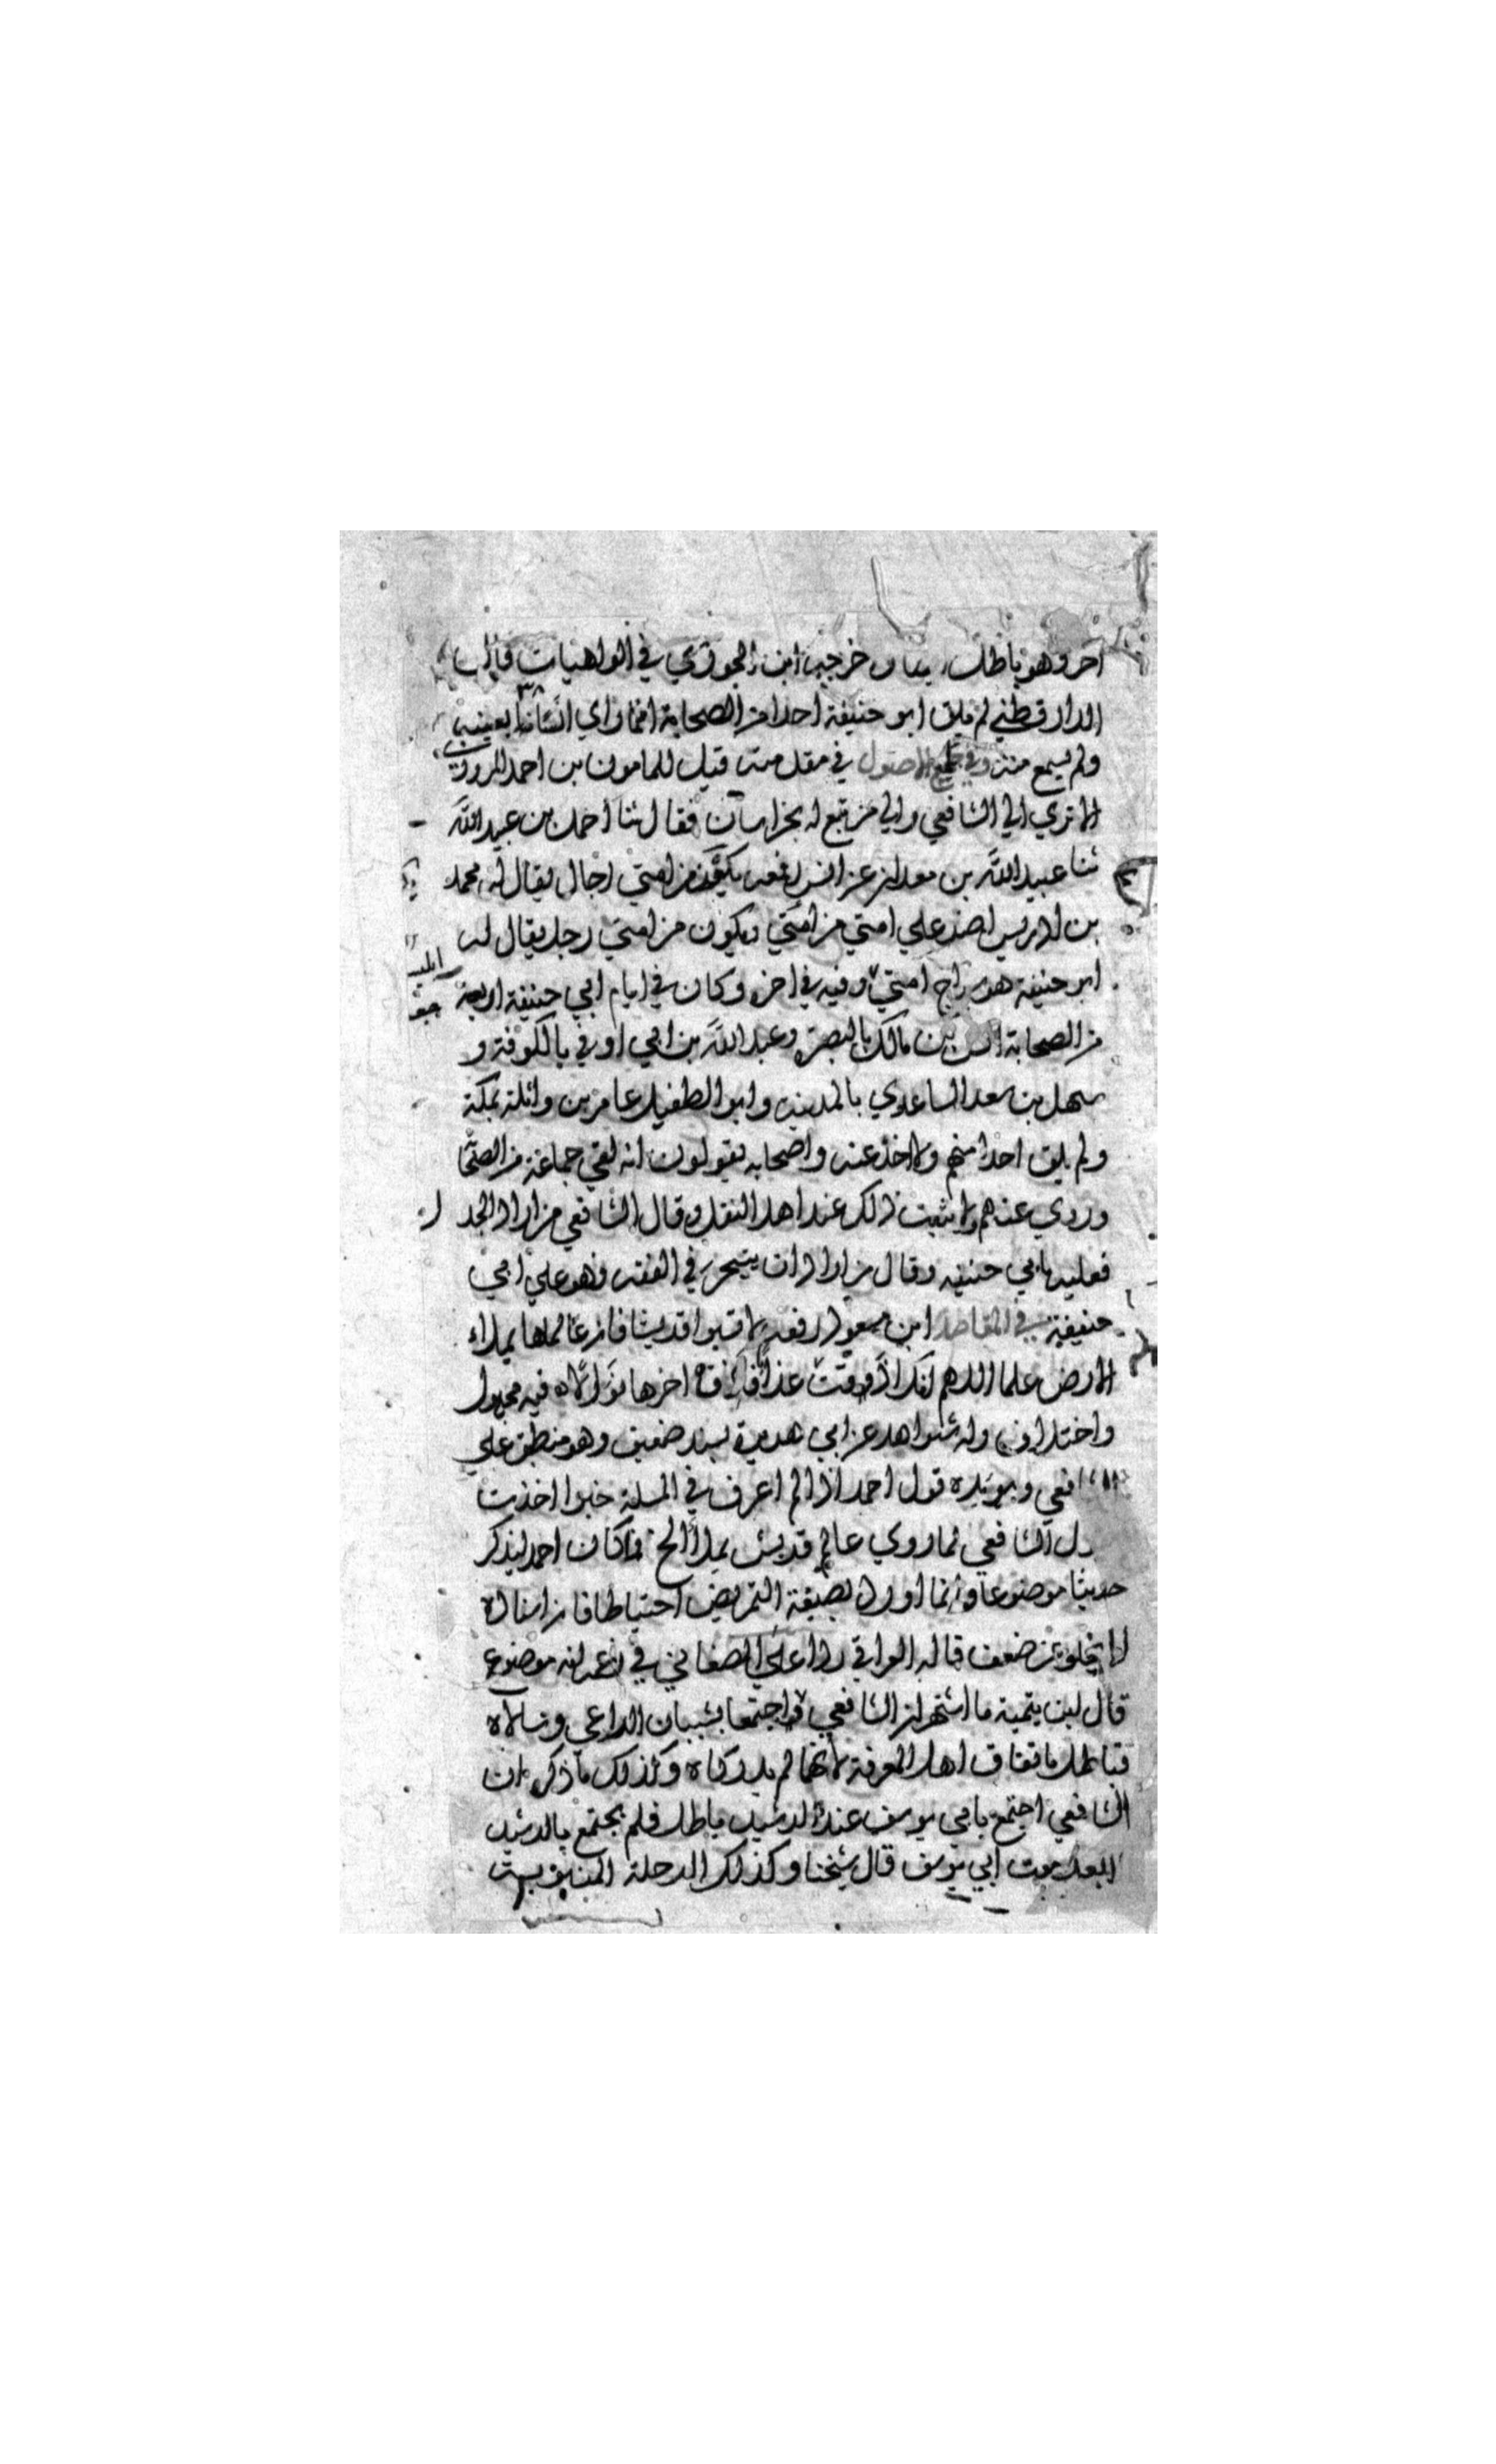 اخر وهو باطل خرجه ابن الجوزي في الواهيات قال
الدارقطني لم يلق ابو حنيفة احدا من الصحابة انما راي انسا بعينه
ولم يسمع منه وفي جامع الاصول في مقدمته قيل للمامون بن احمد المروزي
الا تري الي الشافعي والي من تبع له بخراسان فقال ثنا احمد بن عبد الله
ثنا عبيد الله بن معدان عن انس رفعه يكون من امتي رجال يقال له محمد
بن ادريس اضر علي امتي من امتي ويكون من امتي رجل يقال له
ابو حنيفة هو سراج امتي وفيه في اخره وكان في ايام ابي حنيفة اربعة
من الصحابة انس بن مالك بالبصرة وعبد الله بن ابي اوفي بالكوفة و
سهل بن سعد الساعدي بالمدينه وابو الطفيل عامر بن واثلة بمكة
ولم يلق احدا منهم ولا اخذ عنه واصحابه يقولون انه لقي جماعة من الصحا
وروي عنهم ولا يثبت ذلك عند اهل النقل وقال الشافعي من اراد الجدل
فعليه بابي حنيفه وقال من اراد ان يتبحر في الفقه فهو علي ابي
حنيفة في المقاصد ابن مسعود رفعه لا تسبوا قريشا فان عالمها يملاء
الارض علما اللهم انك اذقت عذابا فاذق اخرها نوالا فيه مجهول
واختلاف وله شواهد عن ابي هريرة بسند ضعيف وهو منطبق علي
الشافعي ويويده قول احمد اذا لم اعرف في المسلة خبرا اخذت
بقول الشافعي لما روي عالم قريش يملا الخ فما كان احمد ليذكر
حديثا موضوعا وانما اورد بصيغة التمريض احتياطا فان اسناده
لا يخلو عن ضعف قاله العراقي ردا علي الصغاني في زعمه انه موضوع
قال ابن تيمية ما اشتهر ان الشافعي واحمد اجتمعا بشيبان الراعي وسالاه
فباطل باتفاق اهل المعرفة لانهما لم يدركاه وكذلك ما ذكر ان
الشافعي اجتمع بابي يوسف عند الرشيد باطل فلم يجتمع بالرشيد
الا بعد موت ابي يوسف قال شيخنا وكذلك الرحلة المنسوبة